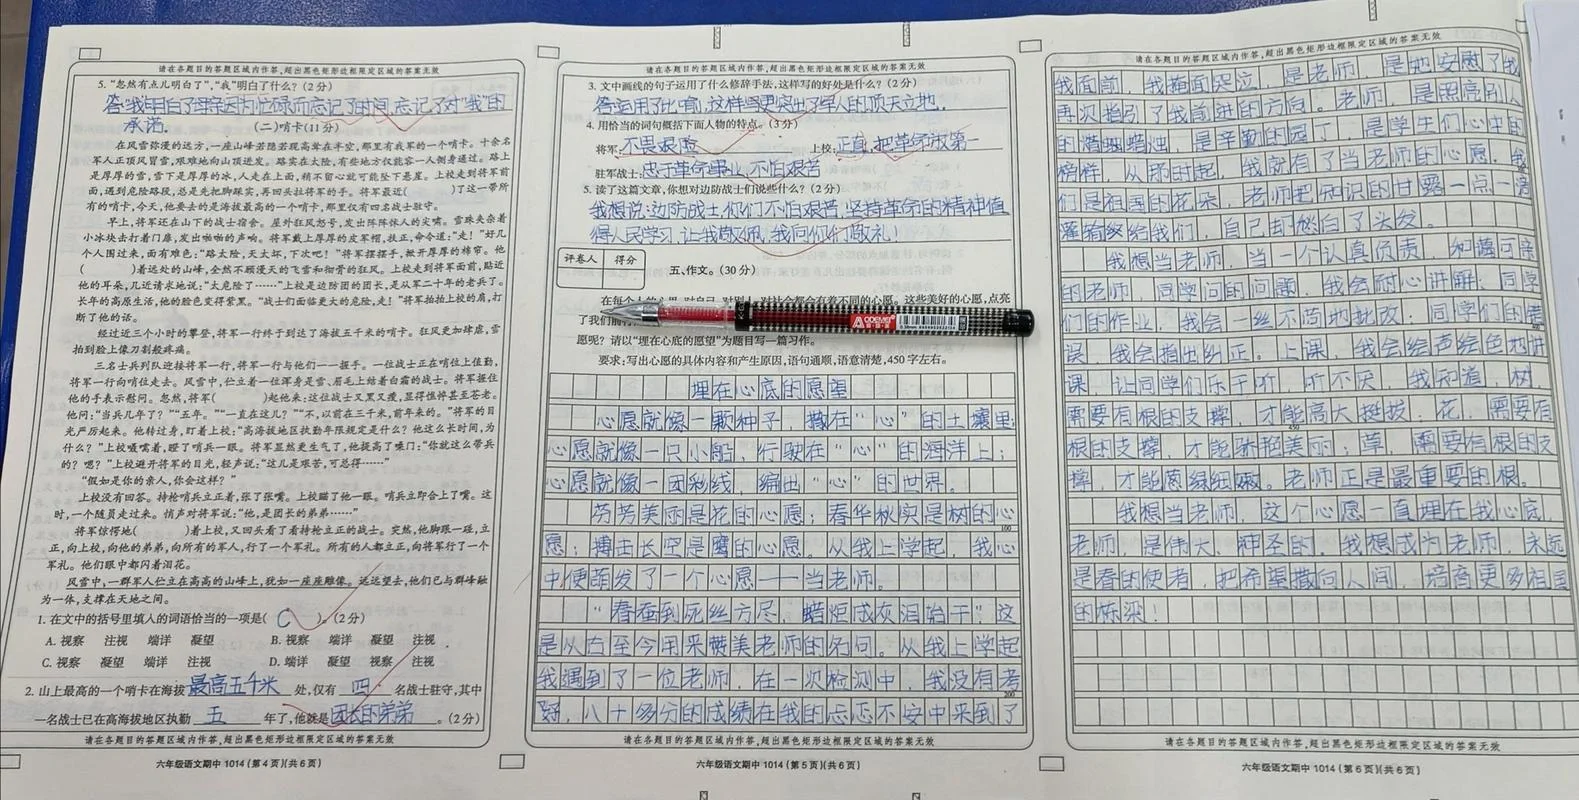 请在各题目的答题区域内作答,超出黑色矩形边框限定区域的答案无效
5.“忽然有点儿明白了”,“我”明白了什么?(2分)
答:我明白了母亲因为忙碌而忘记了时间,忘记了对“我”的
承诺.
(二)哨卡(11分)
在风雪弥漫的远方,一座山峰若隐若现高耸在半空,那里有我军的一个哨卡。十余名
军人正顶风冒雪,艰难地向山顶进发。路实在太险,有些地方仅能容一人侧身通过。路上
是厚厚的雪,雪下是厚厚的冰,人走在上面,稍不留心就可能坠下悬崖。上校走到将军前
面,遇到危险路段,总是先把脚踩实,再回头拉将军的手。将军最近( )了这一带所
有的哨卡,今天,他要去的是海拔最高的一个哨卡,那里仅有四名战士驻守。
早上,将军还在山下的战士宿舍。屋外狂风怒号,发出阵阵怵人的尖啸。雪珠夹杂着
小冰块击打着门扉,发出啪啪的声响。将军戴上厚厚的皮军帽,扶正,命令道:“走!”好几
个人围过来,面有难色:“路太险,天太坏,下次吧!”将军摆摆手,掀开厚厚的棉帘。他
( )着远处的山峰,全然不顾漫天的飞雪和彻骨的狂风。上校走到将军面前,贴近
他的耳朵,几近请求地说:“太危险了……”上校是边防团的团长,是从军二十年的老兵了。
长年的高原生活,他的脸色变得紫黑。“战士们面临更大的危险,走!”将军拍拍上校的肩,打
断了他的话。
经过近三个小时的攀登,将军一行终于到达了海拔五千米的哨卡。狂风更加肆虐,雪
拍到脸上像刀割般疼痛。
三名士兵列队迎接将军一行,将军一行与他们一一握手。一位战士正在哨位上值勤,
将军一行向哨位走去。风雪中,伫立着一位浑身是雪、眉毛上结着白霜的战士。将军握住
他的手表示慰问。忽然,将军( )起他来:这位战士又黑又瘦,显得憔悴甚至苍老。
他问:“当兵几年了?”“五年。”“一直在这儿?”“不,以前在三千米,前年来的。”将军的目
光严厉起来。他转过身,盯着上校:“高海拔地区执勤年限规定是什么?他这么长时间,为
什么?”上校嗫嚅着,瞪了哨兵一眼。将军显然更生气了,他提高了嗓门:“你就这么带兵
的?嗯?”上校避开将军的目光,轻声说:“这儿是艰苦,可总得……”
“假如是你的亲人,你会这样?”
上校没有回答。持枪哨兵立正着,张了张嘴。上校瞄了他一眼。哨兵立即合上了嘴。这
时,一个随员走过来。悄声对将军说:“他,是团长的弟弟……”
将军惊愕地( )着上校,又回头看了看持枪立正的战士。突然,他脚跟一碰,立
正,向上校,向他的弟弟,向所有的军人,行了一个军礼。所有的人都立正,向将军行了一个
军礼。他们眼中都闪着泪花。
风雪中,一群军人伫立在高高的山峰上,犹如一座座雕像。远远望去,他们已与群峰融
为一体,支撑在天地之间。
1.在文中的括号里填入的词语恰当的一项是( C )。(2分)
A.视察 注视 端详 凝望 B.视察 端详 凝望 注视
C.视察 凝望 端详 注视 D.端详 凝望 视察 注视
2.山上最高的一个哨卡在海拔 最高五千米 处,仅有 四 名战士驻守,其中
一名战士已在高海拔地区执勤 五 年了,他就是 团长的弟弟 。(2分)
请在各题目的答题区域内作答,超出黑色矩形边框限定区域的答案无效
六年级语文期中 1014(第4页)(共6页)
请在各题目的答题区域内作答,超出黑色矩形边框限定区域的答案无效
3.文中画线的句子运用了什么修辞手法,这样写的好处是什么?(2分)
答:运用了比喻,这样写更突出了军人的顶天立地.
4.用恰当的词句概括下面人物的特点。(3分)
将军: 不畏艰险 上校: 正直,把革命放第一
驻军战士: 忠于革命事业,不怕艰苦
5.读了这篇文章,你想对边防战士们说些什么?(2分)
我想说:边防战士,你们不怕艰苦,坚持革命的精神值
得人民学习,让我敬佩,我向你们敬礼!
评卷人 得分
五、作文。(30分)
对社会都会有着不同的心愿。这些美好的心愿,点亮
了我们前行
愿呢?请以“埋在心底的愿望”为题目写一篇习作。
要求:写出心愿的具体内容和产生原因,语句通顺,语意清楚,450字左右。
埋在心底的愿望
心愿就像一颗种子,撒在“心”的土壤里;
心愿就像一只小船,行驶在“心”的海洋上;
心愿就像一团彩线,编出“心”的世界。
芬芳美丽是花的心愿;春华秋实是树的心
100
愿;搏击长空是鹰的心愿。从我上学起,我心
中便萌发了一个心愿——当老师。
“春蚕到死丝方尽,蜡炬成灰泪始干”这
是从古至今用来赞美老师的名句。从我上学起
我遇到了一位老师,在一次检测中,我没有考
200
好,八十多分的成绩在我的忐忑不安中来到了
请在各题目的答题区域内作答,超出黑色矩形边框限定区域的答案无效
六年级语文期中 1014(第5页)(共6页)
请在各题目的答题区域内作答,超出黑色矩形边框限定区域的答案无效
我面前,我掩面哭泣,是老师,是她安慰了我
再次指引了我前进的方向。老师,是照亮别人
的蜡烛,是辛勤的园丁,是学生们心中的
榜样,从那时起,我就有了当老师的心愿,我
们是祖国的花朵,老师把知识的甘露一点一滴
灌输给我们,自己却愁白了头发。
我想当老师,当一个认真负责,和蔼可亲
的老师,同学问的问题,我会耐心讲解;同学
们的作业,我会一丝不苟地批改;同学们的错
400
误,我会指出纠正。上课,我会绘声绘色地讲
课,让同学们乐于听,听不厌,我知道,树,
需要有根的支撑,才能高大挺拔;花,需要有
450
根的支撑,才能娇艳美丽;草,需要有根的支
撑,才能葱绿细嫩。老师正是最重要的根。
我想当老师,这个心愿一直埋在我心底,
老师,是伟大、神圣的,我想成为老师,永远
是春的使者,把希望撒向人间,培育更多祖国
的栋梁!
请在各题目的答题区域内作答,超出黑色矩形边框限定区域的答案无效
六年级语文期中 1014(第6页)(共6页)
AODEMEI